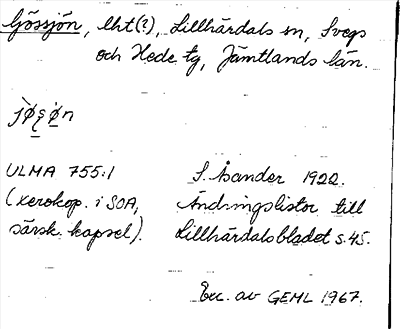 Gössjön, lht(?), Lillhärdals sn, Svegs
och Hede tg, Jämtlands län.
ULMA 755:1
(xerokop. i SOA,
särsk. kapsel).
S. Åsander 1922.
Ändringslistor till
Lillhärdalsbladet s. 45.
Exc. av GEML 1967.